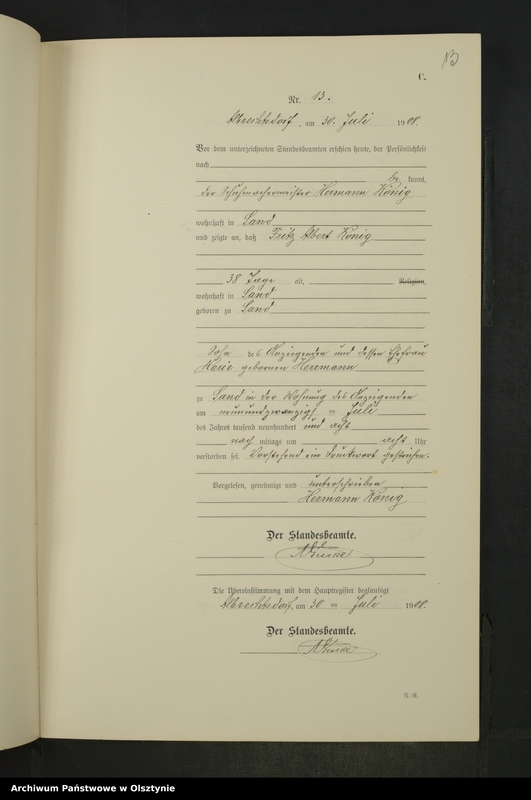 13
C.
Nr. 13.
Albrechtsdorf, am 30. Juli 1908.
Vor dem unterzeichneten Standesbeamten erschien heute, der Persönlichkeit
nach
be kannt,
der Schuhmachermeister Hermann König
wohnhaft in Sand
und zeigte an, daß Fritz Albert König
38 Tage alt, Religion,
wohnhaft in Sand
geboren zu Sand
Sohn des Anzeigenden und dessen Ehefrau
Marie geborenen Herrmann
zu Sand in der Wohnung des Anzeigenden
am neunundzwanzigsten Juli
des Jahres tausend neunhundert und acht
nach mittags um acht Uhr
verstorben sei. Vorstehend ein Druckwort gestrichen.
Vorgelesen, genehmigt und unterschrieben
Hermann König
Der Standesbeamte.
Die Übereinstimmung mit dem Hauptregister beglaubigt
Albrechtsdorf, am 30 ten Juli 1908.
Der Standesbeamte.
Archiwum Państwowe w Olsztynie